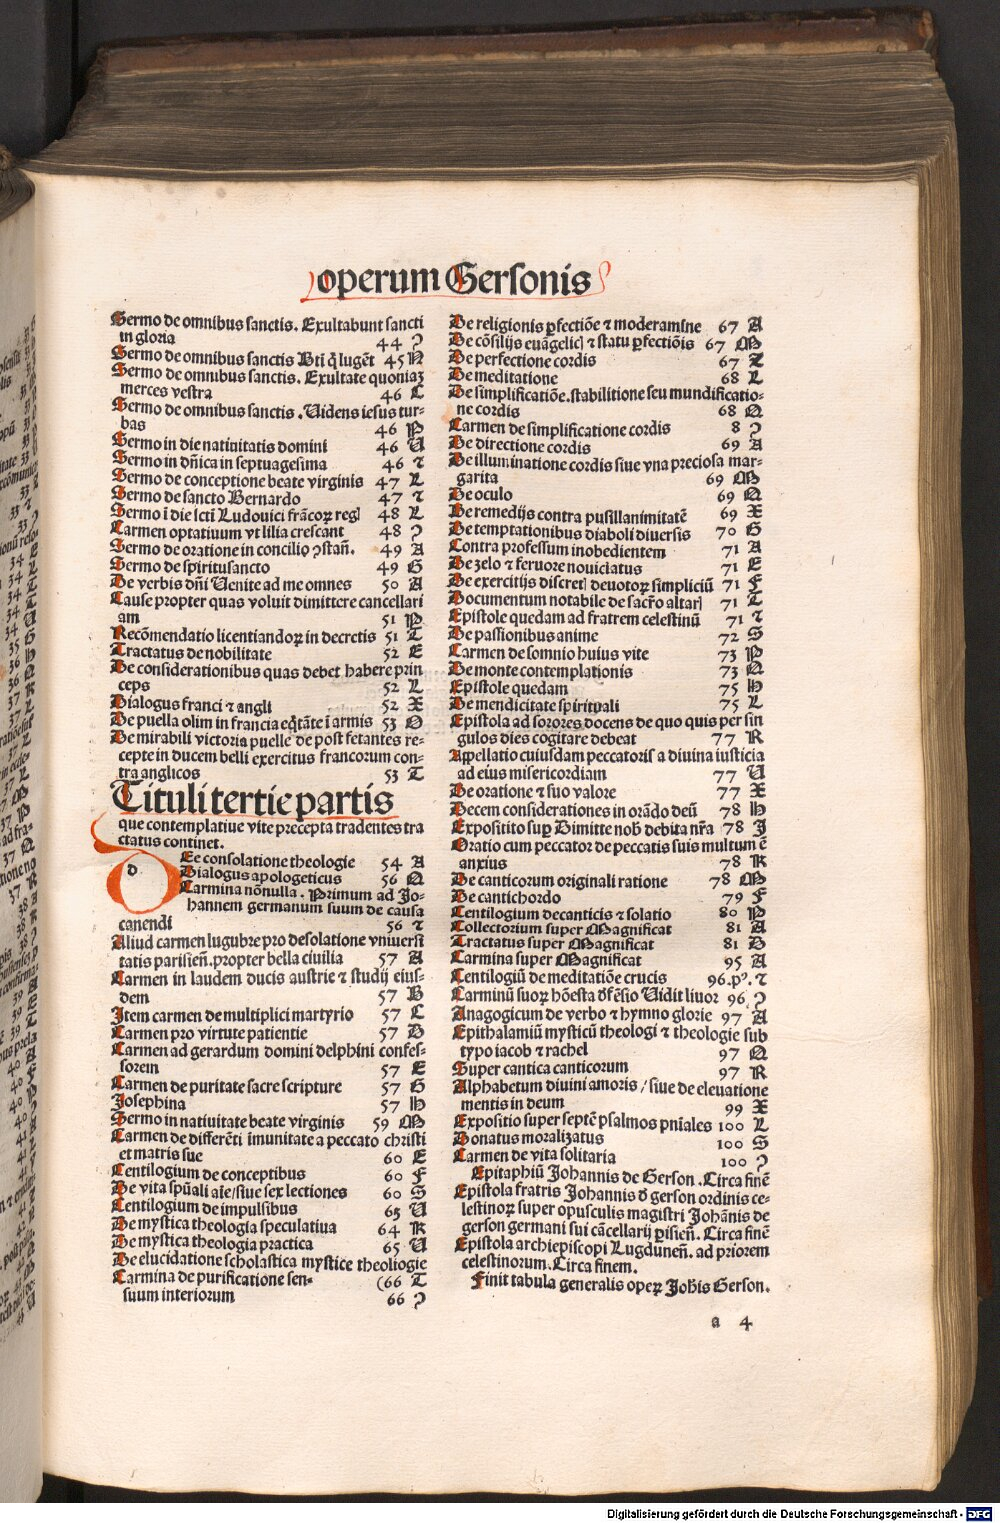 operum Gersonis
Sermo de omnibus sanctis. Exultabunt sancti
in gloria 44 ꝛ
Sermo de omnibus sanctis Bti q̃ lugẽt 45 N
Sermo de omnibus sanctis. Exultate quoniaꝫ
merces vestra 46 C
Sermo de omnibus sanctis. Uidens iesus tur-
bas 46 P
Sermo in die natiuitatis domini 46 U
Sermo in dñica in septuagesima 46 ⁊
Sermo de conceptione beate virginis 47 L
Sermo de sancto Bernardo 47 ⁊
Sermo ĩ die scti Ludouici frãcoꝝ regꝭ 48 L
Carmen optatiuum vt lilia crescant 48 ꝛ
Sermo de oratione in concilio ꝯstañ. 49 A
Sermo de spiritusancto 49 G
De verbis dñi Uenite ad me omnes 50 A
Cause propter quas voluit dimittere cancellari
am 51 P
Recõmendatio licentiandoꝝ in decretis 51 T
Tractatus de nobilitate 52 E
De considerationibus quas debet habere prin
ceps 52 L
Dialogus franci ⁊ angli 52 X
De puella olim in francia eq̃tãte ĩ armis 53 O
De mirabili victoria puelle de post fetantes re-
cepte in ducem belli exercitus francorum con-
tra anglicos 53 T
Tituli tertie partis
que contemplatiue vite precepta tradentes tra
ctatus continet.
d
Ee consolatione theologie 54 A
Dialogus apologeticus 56 Q
Carmina nõnulla. Primum ad Jo-
hannem germanum suum de causa
canendi 56 ⁊
Aliud carmen lugubre pro desolatione vniuersi
tatis parisieñ. propter bella ciuilia 57 A
Carmen in laudem ducis austrie ⁊ studij eius-
dem 57 B
Item carmen de multiplici martyrio 57 C
Carmen pro virtute patientie 57 D
Carmen ad gerardum domini delphini confes-
sorem 57 E
Carmen de puritate sacre scripture 57 G
Josephina 57 H
Sermo in natiuitate beate virginis 59 M
Carmen de differẽti imunitate a peccato christi
et matris sue 60 E
Centilogium de conceptibus 60 F
De vita spũali aĩe/siue sex lectiones 60 S
Centilogium de impulsibus 63 U
De mystica theologia speculatiua 64 R
De mystica theologia practica 65 U
De elucidatione scholastica mystice theologie
Carmina de purificatione sen- (66 T
suum interiorum 66 ꝛ
De religionis ꝑfectiõe ⁊ moderamine 67 A
De cõsilijs euãgelicꝭ ⁊ statu ꝑfectiõis 67 M
De perfectione cordis 67 Z
De meditatione 68 L
De simplificatiõe. stabilitione seu mundificatio-
ne cordis 68 Q
Carmen de simplificatione cordis 8 ꝛ
De directione cordis 69 A
De illuminatione cordis siue vna preciosa mar-
garita 69 M
De oculo 69 Q
De remedijs contra pusillanimitatẽ 69 X
De temptationibus diaboli diuersis 70 G
Contra professum inobedientem 71 A
De zelo ⁊ feruore nouiciatus 71 E
De exercitijs discretꝭ deuotoꝝ simpliciũ 71 F
Documentum notabile de sacr̃o altarꝭ 71 T
Epistole quedam ad fratrem celestinũ 71 ⁊
De passionibus anime 72 S
Carmen de somnio huius vite 73 P
De monte contemplationis 73 Q
Epistole quedam 75 H
De mendicitate spirituali 75 L
Epistola ad sorores docens de quo quis per sin
gulos dies cogitare debeat 77 R
Appellatio cuiusdam peccatoris a diuina iusticia
ad eius misericordiam 77 U
De oratione ⁊ suo valore 77 X
Decem considerationes in orãdo deũ 78 H
Expositito suꝑ Dimitte nob̃ debita nr̃a 78 J
Oratio cum peccator de peccatis suis multum ẽ
anxius 78 K
De canticorum originali ratione 78 M
De canticordo 79 F
Centilogium de canticis ⁊ solatio 80 P
Collectorium super Magnificat 81 A
Tractatus super Magnificat 81 D
Carmina super Magnificat 95 A
Centilogiũ de meditatiõe crucis 96. pꝰ. ⁊
Carminũ suoꝝ hõesta dẽfẽsio Uidit liuor 96 ꝛ
Anagogicum de verbo ⁊ hymno glorie 97 A
Epithalamiũ mysticũ theologi ⁊ theologie sub
typo iacob ⁊ rachel 97 Q
Super cantica canticorum 97 R
Alphabetum diuini amoris / siue de eleuatione
mentis in deum 99 X
Expositio super septẽ psalmos pniales 100 L
Donatus moralizatus 100 S
Carmen de vita solitaria 100 ꝛ
Epitaphiũ Johannis de Gerson. Circa finẽ
Epistola fratris Johannis ð gerson ordinis ce-
lestinoꝝ super opusculis magistri Johãnis de
gerson germani sui cãcellarij ꝑisieñ. Circa finẽ
Epistola archiepiscopi Lugduneñ. ad priorem
celestinorum. Circa finem.
Finit tabula generalis opeꝝ Joh̃is Gerson.
a 4
Digitalisierung gefördert durch die Deutsche Forschungsgemeinschaft - DFG